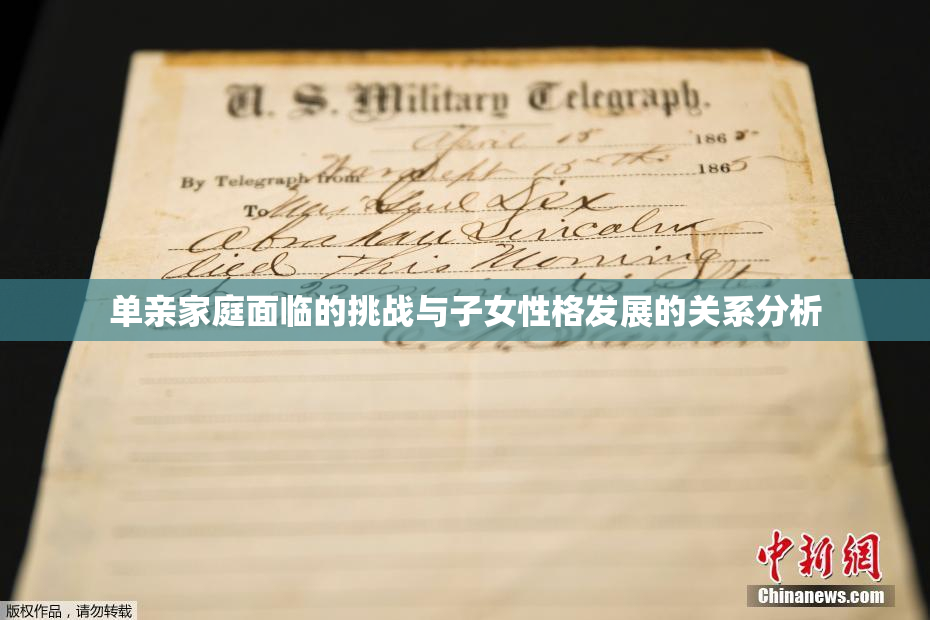 U. S. Military Telegraph.
April 15 1865-
By Telegraph from War Dept 15th 1865
To Maj Genl Dix
Abraham Lincoln
died This Morning
at 22 minutes after
单亲家庭面临的挑战与子女性格发展的关系分析
E. M. Stanton
中新网
Chinanews.com
版权作品，请勿转载